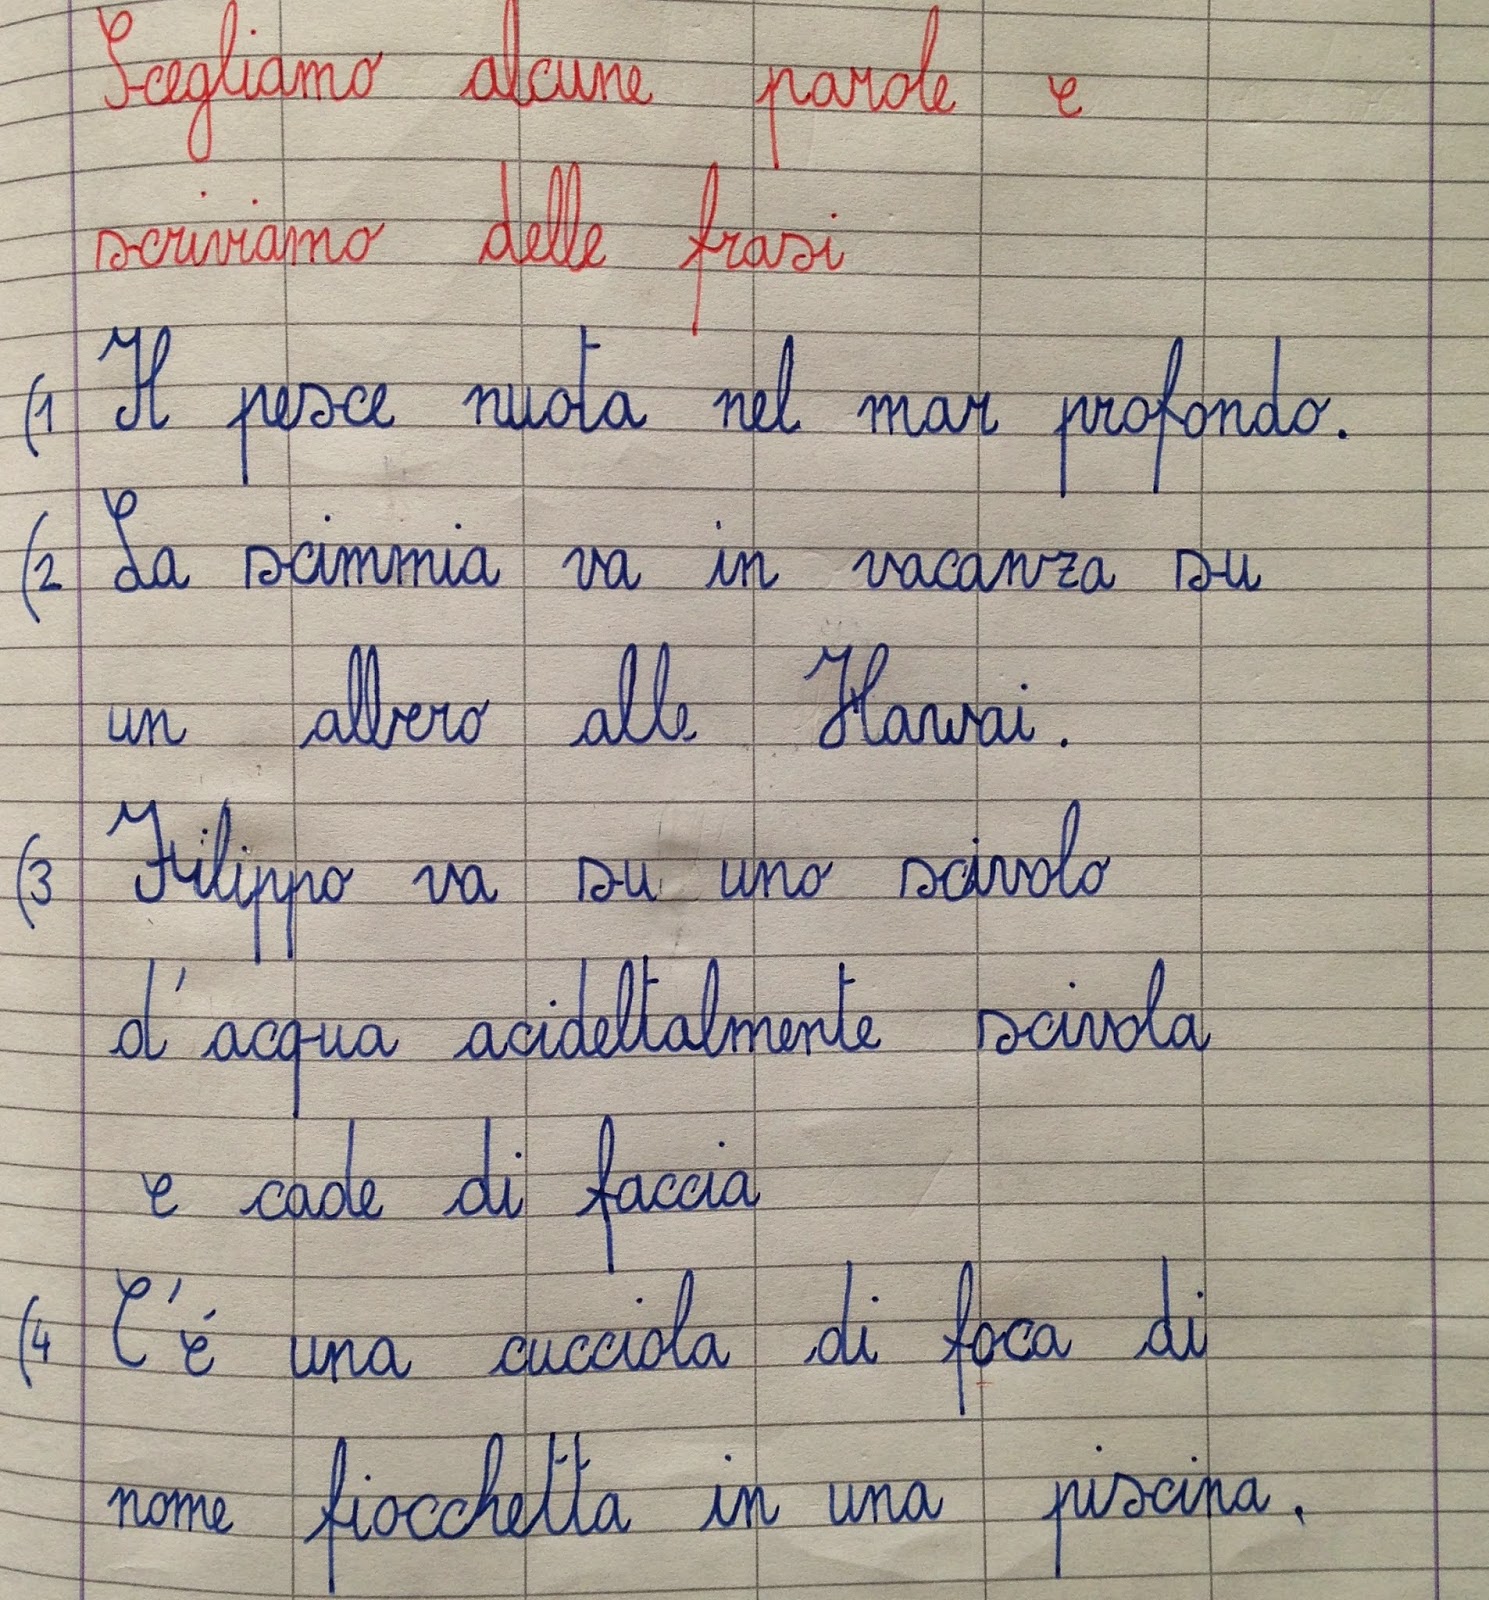 Scegliamo alcune parole e
scriviamo delle frasi
(1 Il pesce nuota nel mar profondo.
(2 La scimmia va in vacanza su
un albero alle Hawai.
(3 Filippo va su uno scivolo
d'acqua acideltalmente scivola
e cade di faccia
(4 C'é una cucciola di foca di
nome fiocchetta in una piscina.